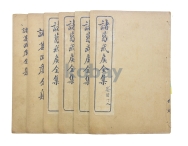 諸葛武侯全集
諸葛武侯全集
諸葛武侯全集
諸葛武侯全集
諸葛武侯全集
諸葛武侯全集
ebay